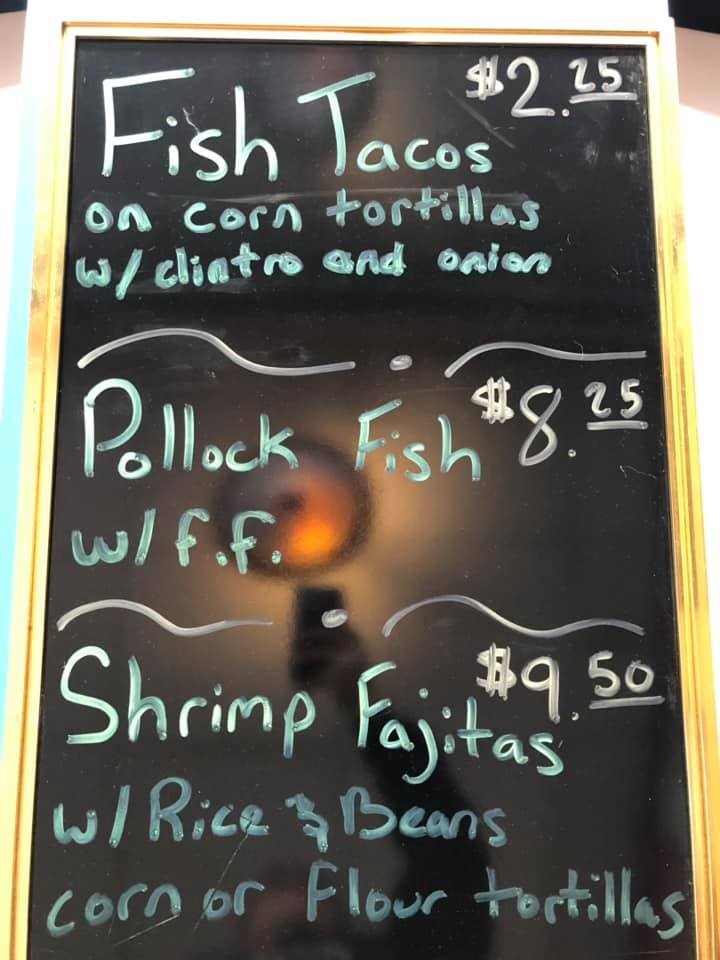 Fish Tacos $2.25
on corn tortillas
w/ clintro and onion
Pollock Fish $8.25
w/ f.f.
Shrimp Fajitas $9.50
w/ Rice & Beans
corn or Flour tortillas